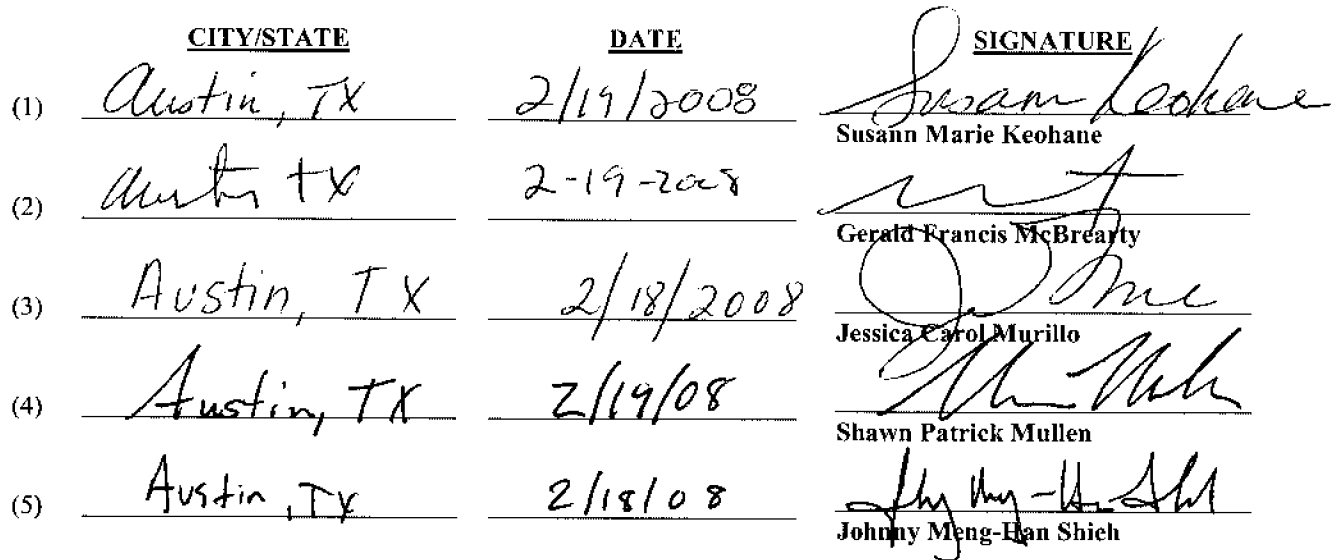 CITY/STATE DATE SIGNATURE
(1) Austin, TX 2/19/2008 Susann Keohane
Susann Marie Keohane
(2) Austin TX 2-19-2008
Gerald Francis McBrearty
(3) Austin, TX 2/18/2008
Jessica Carol Murillo
(4) Austin, TX 2/19/08
Shawn Patrick Mullen
(5) Austin, TX 2/18/08
Johnny Meng-Han Shieh